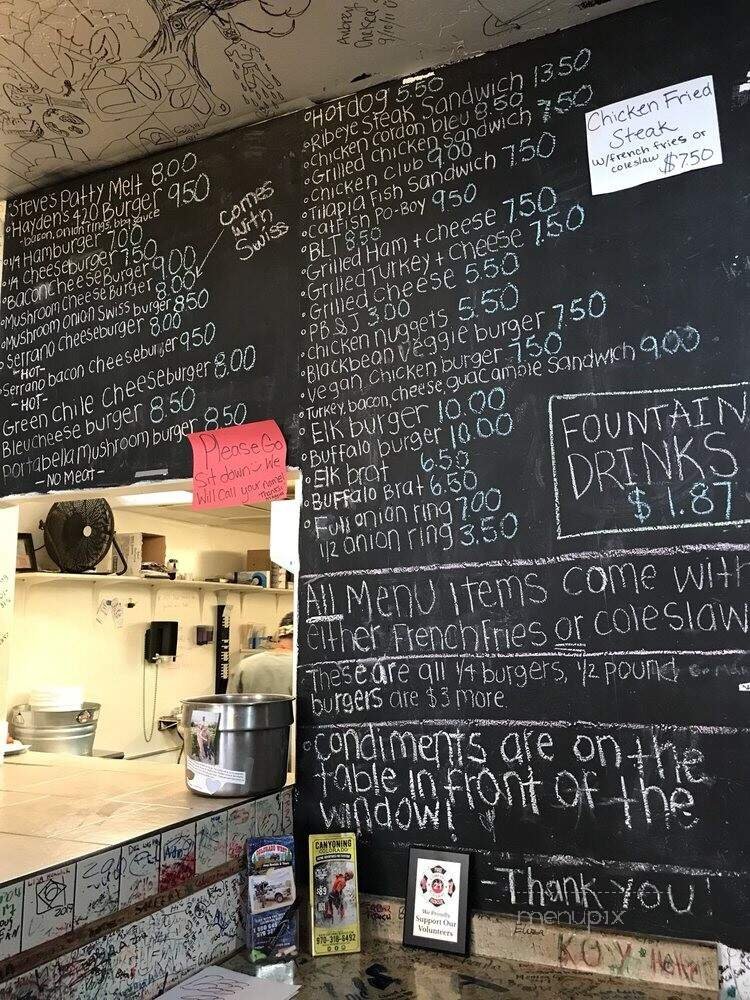 Steve's Patty Melt 8.00
Hayden's 420 Burger 9.50
-bacon, onion rings, bbq sauce
1/4 Hamburger 7.00
1/4 Cheeseburger 7.50
Bacon Cheese Burger 9.00
Mushroom Cheese Burger 8.00
Mushroom onion Swiss burger 8.50
Serrano cheeseburger 8.00
-HOT-
Serrano bacon cheeseburger 9.50
-HOT-
Green Chile Cheeseburger 8.00
Bleucheese burger 8.50
Portabella mushroom burger 8.50
-NO Meat-
comes
with
Swiss
Please Go
sit down We
Will call your name!
Thanks
Hotdog 5.50
Ribeye Steak Sandwich 13.50
Chicken cordon bleu 8.50
Grilled chicken sandwich 7.50
Chicken Club 9.00
Tilapia Fish Sandwich 7.50
Catfish Po-Boy 9.50
BLT 8.50
Grilled Ham + cheese 7.50
Grilled Turkey + cheese 7.50
Grilled cheese 5.50
PB&J 3.00
chicken nuggets 5.50
Blackbean veggie burger 7.50
vegan chicken burger 7.50
Turkey, bacon, cheese, guacamole Sandwich 9.00
Elk burger 10.00
Buffalo burger 10.00
Elk brat 6.50
Buffalo Brat 6.50
Full onion ring 7.00
1/2 onion ring 3.50
Chicken Fried
Steak
w/french fries or
coleslaw $7.50
FOUNTAIN
DRINKS
$1.87
All Menu Items come with
either French Fries or coleslaw
These are all 1/4 burgers, 1/2 pound
burgers are $3 more.
condiments are on the
table in front of the
window!
-Thank You!
menupix
CANYONING
COLORADO
$89
970-318-6492
21
We Proudly
Support Our
Volunteers